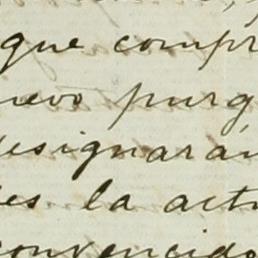 que compr
nuevo purg
designarán
es la actu
convencido